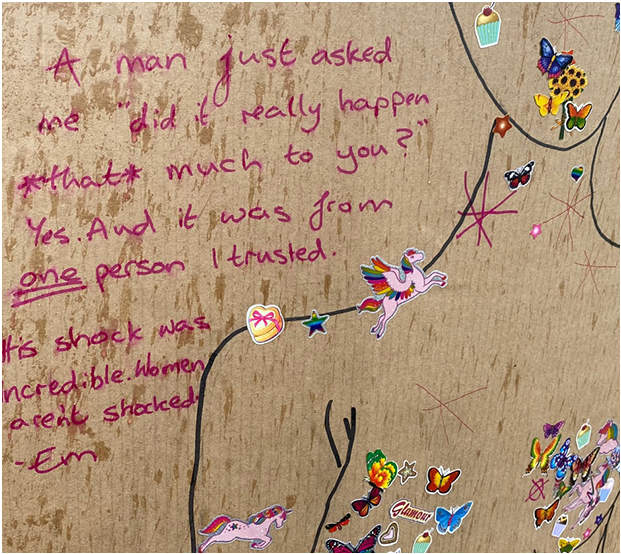 A man just asked
me "did it really happen
*that* much to you?"
Yes. And it was from
one person I trusted.
His shock was
incredible. Women
aren't shocked.
-Em
Glamour